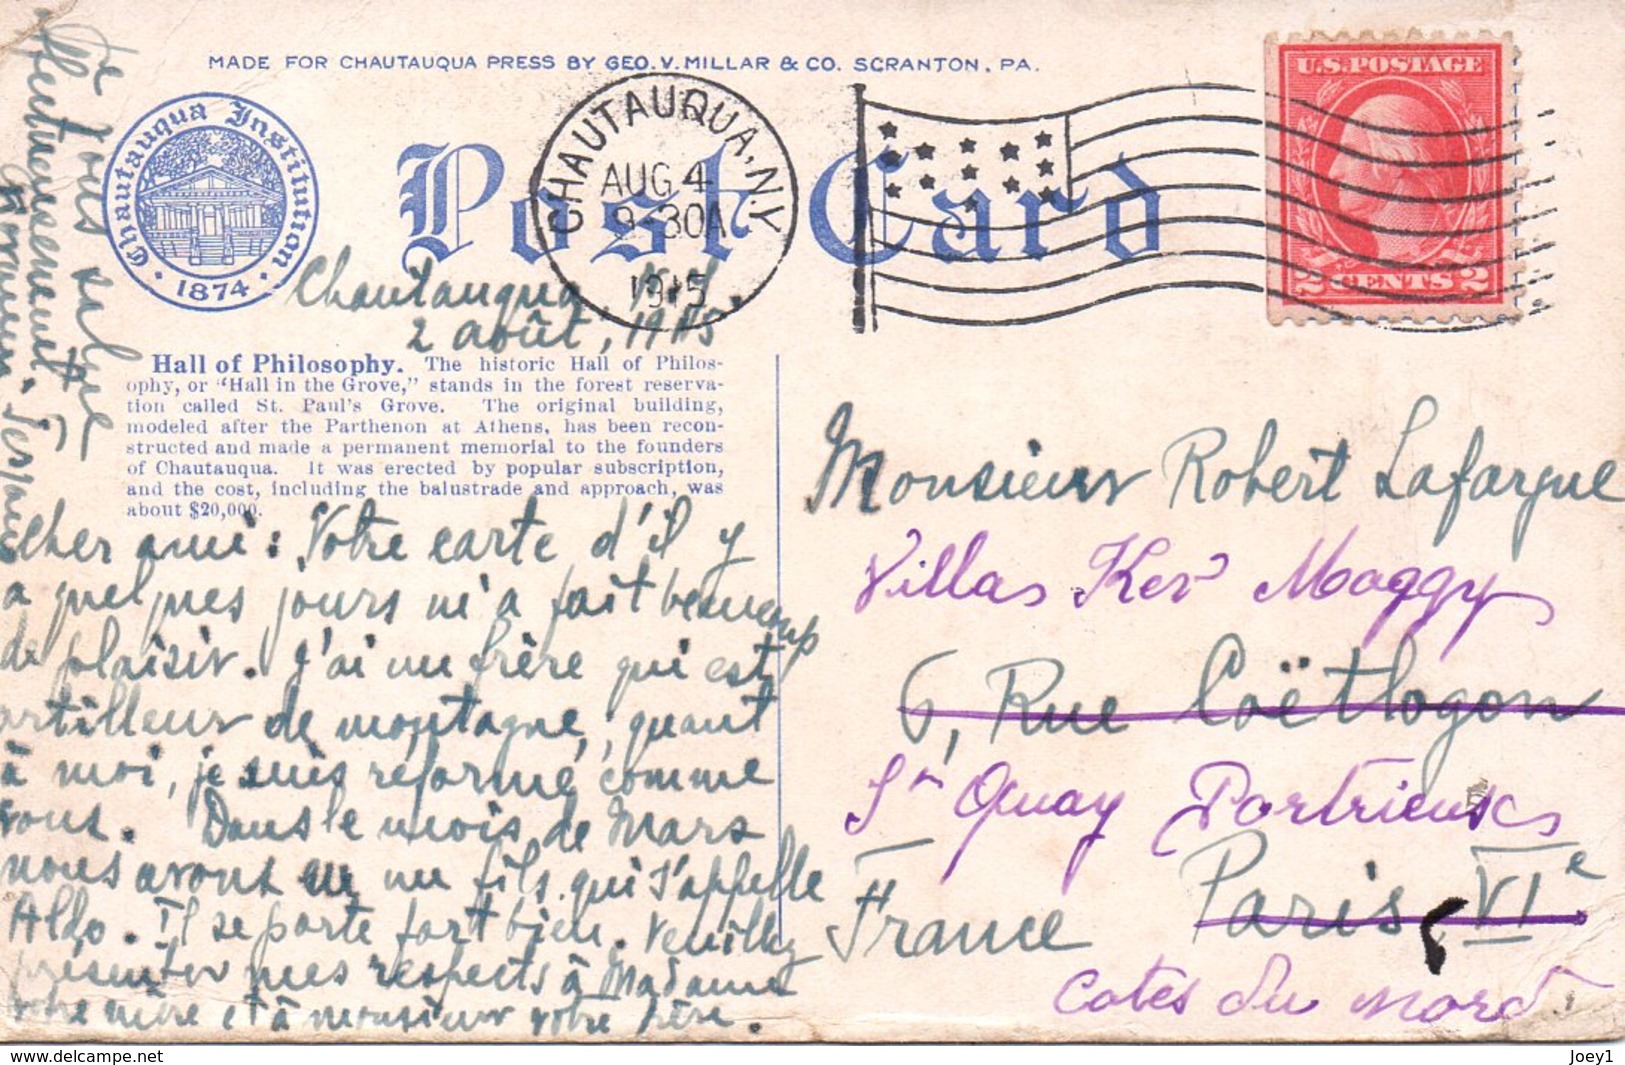 MADE FOR CHAUTAUQUA PRESS BY GEO. V. MILLAR & CO. SCRANTON, PA.
Chautauqua Institution
· 1874 ·
Post Card
CHAUTAUQUA, N.Y.
AUG 4
9 30A
1915
U.S. POSTAGE
2 CENTS 2
Chautauqua, N.Y.
2 août, 1915
Hall of Philosophy. The historic Hall of Philos-
ophy, or "Hall in the Grove," stands in the forest reserva-
tion called St. Paul's Grove. The original building,
modeled after the Parthenon at Athens, has been recon-
structed and made a permanent memorial to the founders
of Chautauqua. It was erected by popular subscription,
and the cost, including the balustrade and approach, was
about $20,000.
Cher ami : Votre carte d'il y
a quelques jours m'a fait beaucoup
de plaisir. J'ai un frère qui est
artilleur de montagne, quant
à moi, je suis réformé comme
vous. Dans le mois de Mars
nous avons eu un fils qui s'appelle
Aldo. Il se porte fort bien. Veuillez
présenter mes respects à Madame
votre mère et à monsieur votre frère.
Je vous salue
affectueusement
Monsieur Robert Lafargue
Villas Ker Maggy
6, Rue Coëtlogon
St Quay Portrieux
Paris, VIe
France
Cotes du nord
Joey1